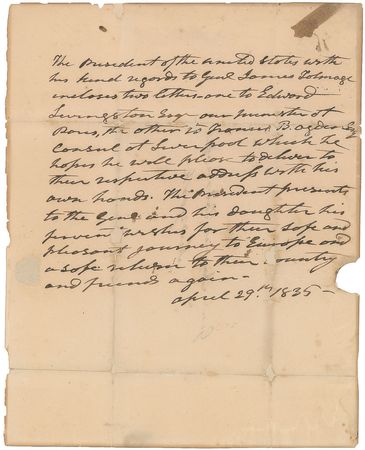 The President of the united states with
his kind regards to Genl James Tolmage
incloses two letters - one to Edward
Livingston Esqr our minister at
Paris, the other to Francis B. ogden Esqr
consul at Liverpool which he
hopes he will please to deliver to
their respective address with his
own hands. The President presents
to the Genl and his daughter his
wishes for their safe and
pleasant journey to Europe and
a safe return to their country
and friends again -
april 29.th 1835 -